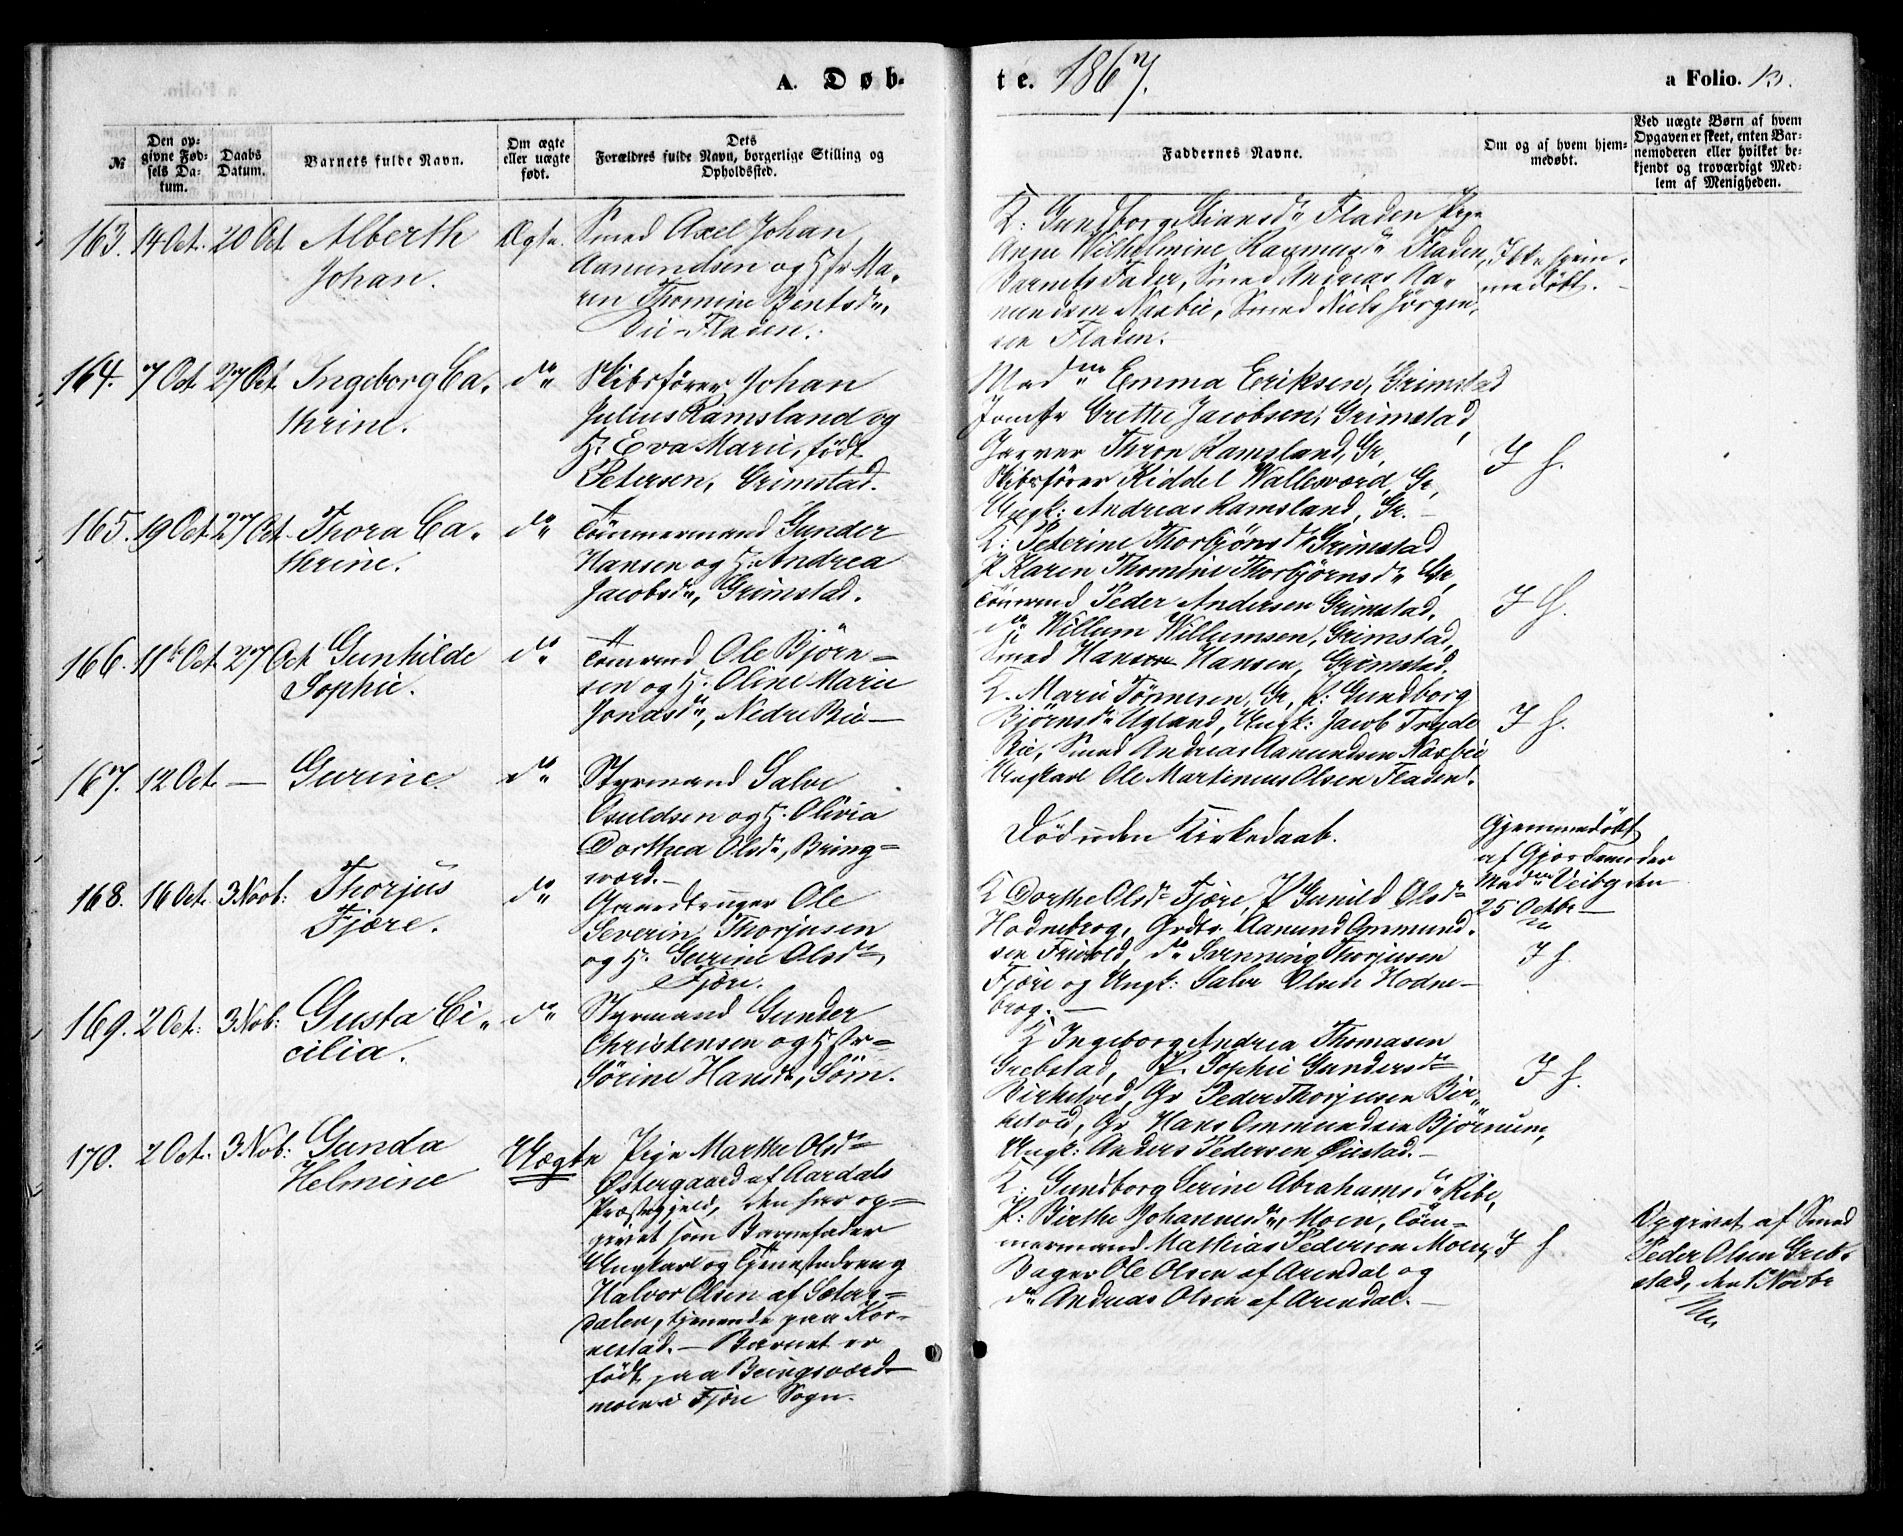 A. Døb-
te. 1867.
a Folio. 13.
№
Den op-
givne Fød-
sels Da-
tum.
Daabs
Datum.
Barnets fulde Navn.
Om ægte
eller uægte
født.
Dets
Forældres fulde Navn, borgerlige Stilling og
Opholdssted.
Faddernes Navne.
Om og af hvem hjem-
medøbt.
Ved uægte Børn af hvem
Opgaven er skeet, enten Bar-
nemoderen eller hvilket be-
kjendt og troværdigt Med-
lem af Menigheden.
163. 14 Oct. 20 Oct Alberth
Johan.
Ægte.
Smed Axel Johan
Aamundsen og Hstr Ma-
ren Thomine Bentsdr,
Bie-Fladen.
K: Gundborg Fladen Pige
Anne Wilhelmine Rasmusdr Fladen,
Barnets Fader, Smed Andreas Aa-
mundsen Næsbie, Smed Niels Jørgen-
sen Fladen.
Ikke hjem-
medøbt.
164. 7 Oct. 27 Oct. Ingeborg Ca-
thrine.
do
Skibsfører Johan
Julius Ramsland og
H. Eva Marie, født
Petersen, Grimstad.
Madme Emma Eriksen, Grimstad
Jomfr Grethe Jacobsen, Grimstad,
Garver Thron Ramsland, Gr,
Skibsfører Kiddel Wallesværd, Gr,
Ungk: Andreas Ramsland, Gr.
I h.
165. 19 Oct. 27 Oct. Thora Ca-
thrine.
do
Tømmermand Gunder
Hansen og H: Andrea
Jacobsdr, Grimstad.
K: Peterine Thorbjønsdr Grimstad
P Karen Thomine Thorbjørnsdr Gr,
Tømmd Peder Andersen Grimstad,
do Willum Willumsen, Grimstad,
Smed Hans Hansen, Grimstad.
I h.
166. 11te Oct 27 Oct Gunhilde
Sophie.
do
Tømmd Ole Bjørn-
sen og H. Oline Marie
Jonasdr, Nedre Bie
K. Marie Tønnesen, Gr, P: Gundborg
Bjørnsdr Ugland, Ungk: Jacob Tryde
Bie, Smed Andreas Aamundsen Næsbie
Ungkarl Ole Martinius Olsen Fladen.
I h.
167. 12 Oct. — Gurine.
do
Styrmand Salve
Osuldsen og H. Olivia
Dorthea Olsdr, Bring-
værd.
Død uden Kirkedaab.
Hjemmedøbt
af Gjordemoder
Madme Veiby den
25 Octbr
168. 16 Oct. 3 Novb: Thorjus
Fjære.
do
Gaardbruger Ole
Severin Thorjusen
og H. Gurine Olsdr,
Fjære.
K Dorthe Olsdr Fjære, P Gunild Olsdr
Hodneborg, Grdbr Aanund Ommund-
sen Frivold, do Svenning Thorjusen
Fjære og Ungk: Salve Olsen Hodne-
borg.
I h.
169. 2 Oct: 3 Nob: Gusta Ci-
cilia.
do
Styrmand Gunder
Christensen og Hstr-
Sørine Hansdr, Søm.
K Ingeborg Andrea Thomasen
Grebstad, P. Sophie Gundersdr
Birketved, Gr Peder Thorjusen Bir-
ketved, Gr Hans Ommundsen Bjørnum,
Ungk: Anders Pedersen Øiestad.
I h.
170. 2 Oct. 3 Nob: Gunda
Helmine
Uægte
Pige Marthe Olsdr
Østergaard af Aardals
Præstegjeld, den har op-
givet som Barnefader
Ungkarl og Tjenestedreng
Halvor Olsen af Sæters-
dalen, tjenende paa Kor-
nestad. — Barnet er
født paa Bringsværd-
moen i Fjære Sogn.
K: Gundborg Serine Abrahamsdr Ribe,
P: Birthe Johannesdr, Moen, Tøm-
mermand Mathias Pedersen Moen,
Bager Ole Olsen af Arendal og
do Andreas Olsen af Arendal.
I h
Opgivet af Smed
Peder Olsen Greb-
stad, den 1 Novbr